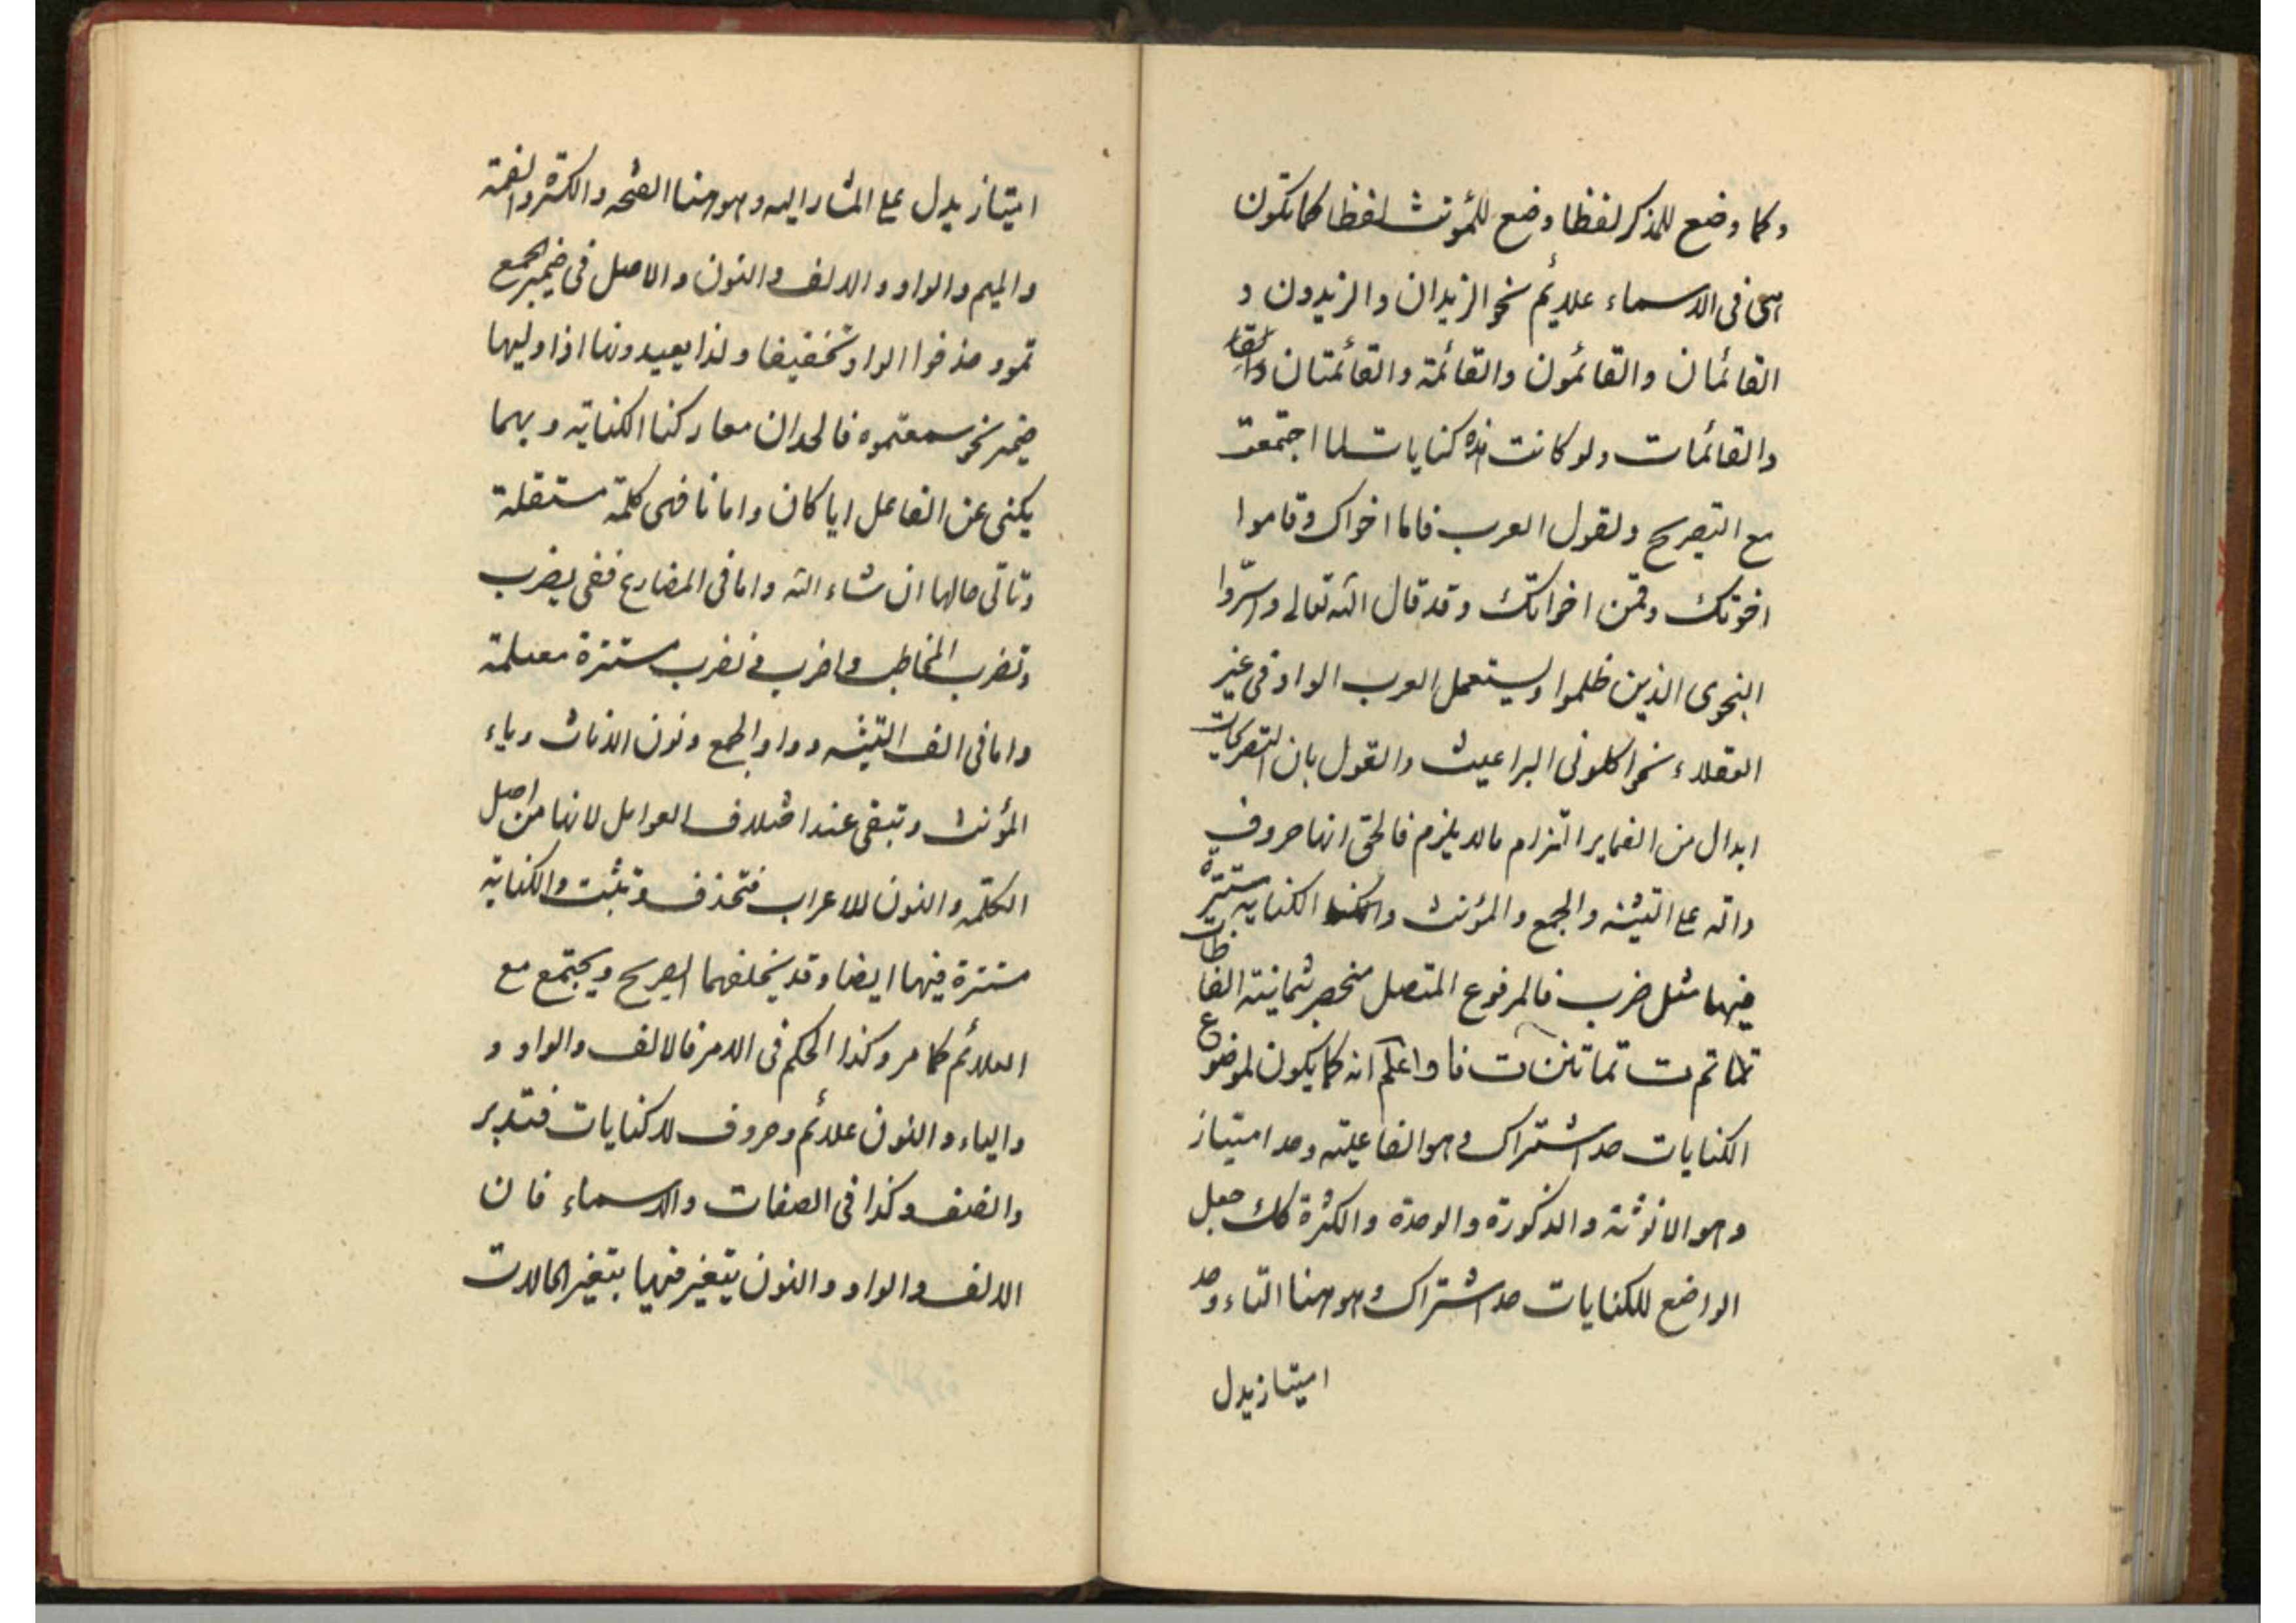 وكما وضع للمذكر لفظا وضع للمؤنث لفظا كما تكون
هى فى الاسماء علائم نحو الزيدان والزيدون و
القائمان والقائمون والقائمة والقائمتان
والقائمات ولو كانت هذه كنايات لما اجتمعت
مع التصريح ولقول العرب قاما اخواك وقاموا
اخوتك وقمن اخواتك وقد قال الله تعالى واسرّوا
النجوى الذين ظلموا ويستعمل العرب الواو فى غير
العقلاء نحو اكلونى البراغيث والقول بان التصريحات
ابدال من الضماير التزام مالا يلزم فالحق انها حروف
دالة على التثنية والجمع والمؤنث والكناية مستترة
فيها مثل ضرب فالمرفوع المتصل منحصر بثمانية الفاظ
تما تم ت تما تن ت نا واعلم انه كما يكون لموضوع
الكنايات حد اشتراك وهو الفاعلية وحد امتياز
وهو الانوثة والذكورة والوحدة والكثرة كك جعل
الواضع للكنايات حد اشتراك وهو هنا التاء وحد
امتياز يدل
امتياز يدل على المشار اليه وهو هنا الفتحه والكسرة والضمة
والميم والواو والالف والنون والاصل فى ضمير الجمع
تمو وحذفوا الواو تخفيفا ولذا يعيدونها اذا وليها
ضمير نحو سمعتموه فالحدان معا ركنا الكناية وبهما
يكنى عن الفاعل ايا كان واما نا فهى كلمة مستقلة
وتاتى حالها ان شاء الله واما فى المضارع ففى يضرب
وتضرب المخاطب واضرب و نضرب مستترة معلمة
واما فى الف التثنيه وواو الجمع ونون الاناث وياء
المؤنث وتبقى عند اختلاف العوامل لانها من اصل
الكلمة والنون للاعراب فتحذف وتثبت والكناية
مستترة فيها ايضا وقد يخلفهما الصريح ويجتمع مع
العلائم كما مر وكذا الحكم فى الامر فالالف والواو و
والياء والنون علائم وحروف لا كنايات فتدبر
وانصف وكذا فى الصفات والاسماء فان
الالف والواو والنون يتغير فيها بتغير الحالات